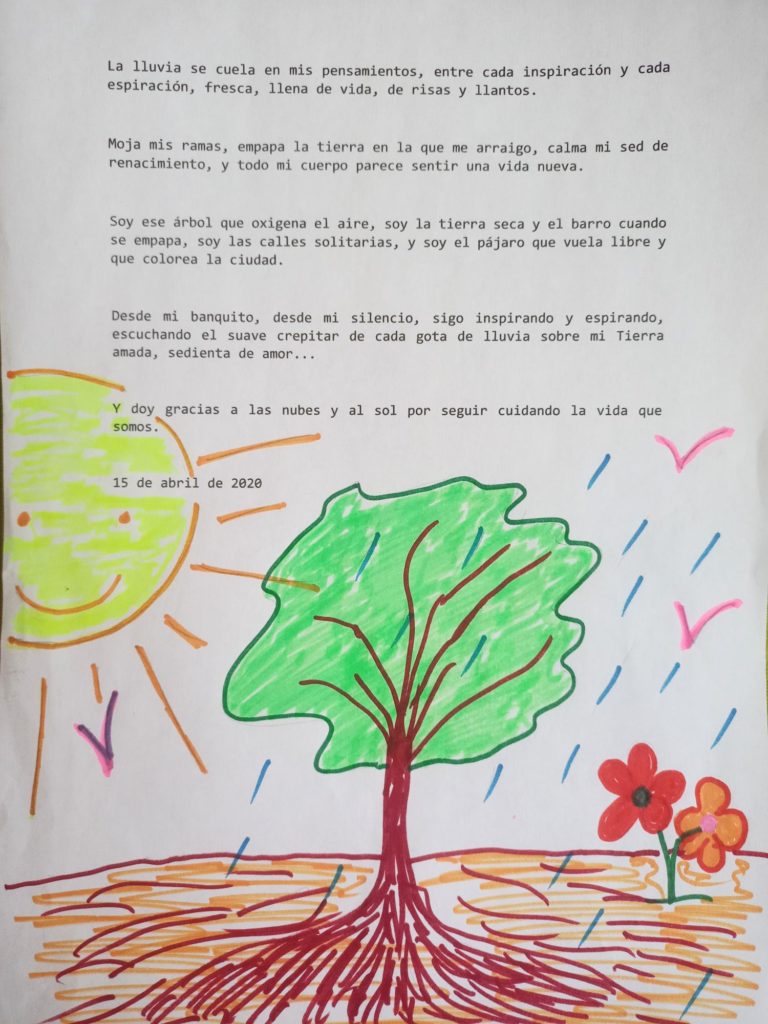 La lluvia se cuela en mis pensamientos, entre cada inspiración y cada
espiración, fresca, llena de vida, de risas y llantos.
Moja mis ramas, empapa la tierra en la que me arraigo, calma mi sed de
renacimiento, y todo mi cuerpo parece sentir una vida nueva.
Soy ese árbol que oxigena el aire, soy la tierra seca y el barro cuando
se empapa, soy las calles solitarias, y soy el pájaro que vuela libre y
que colorea la ciudad.
Desde mi banquito, desde mi silencio, sigo inspirando y espirando,
escuchando el suave crepitar de cada gota de lluvia sobre mi Tierra
amada, sedienta de amor...
Y doy gracias a las nubes y al sol por seguir cuidando la vida que
somos.
15 de abril de 2020